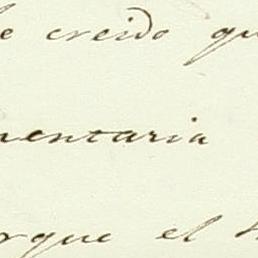 e creido qu
mentaria
rque el